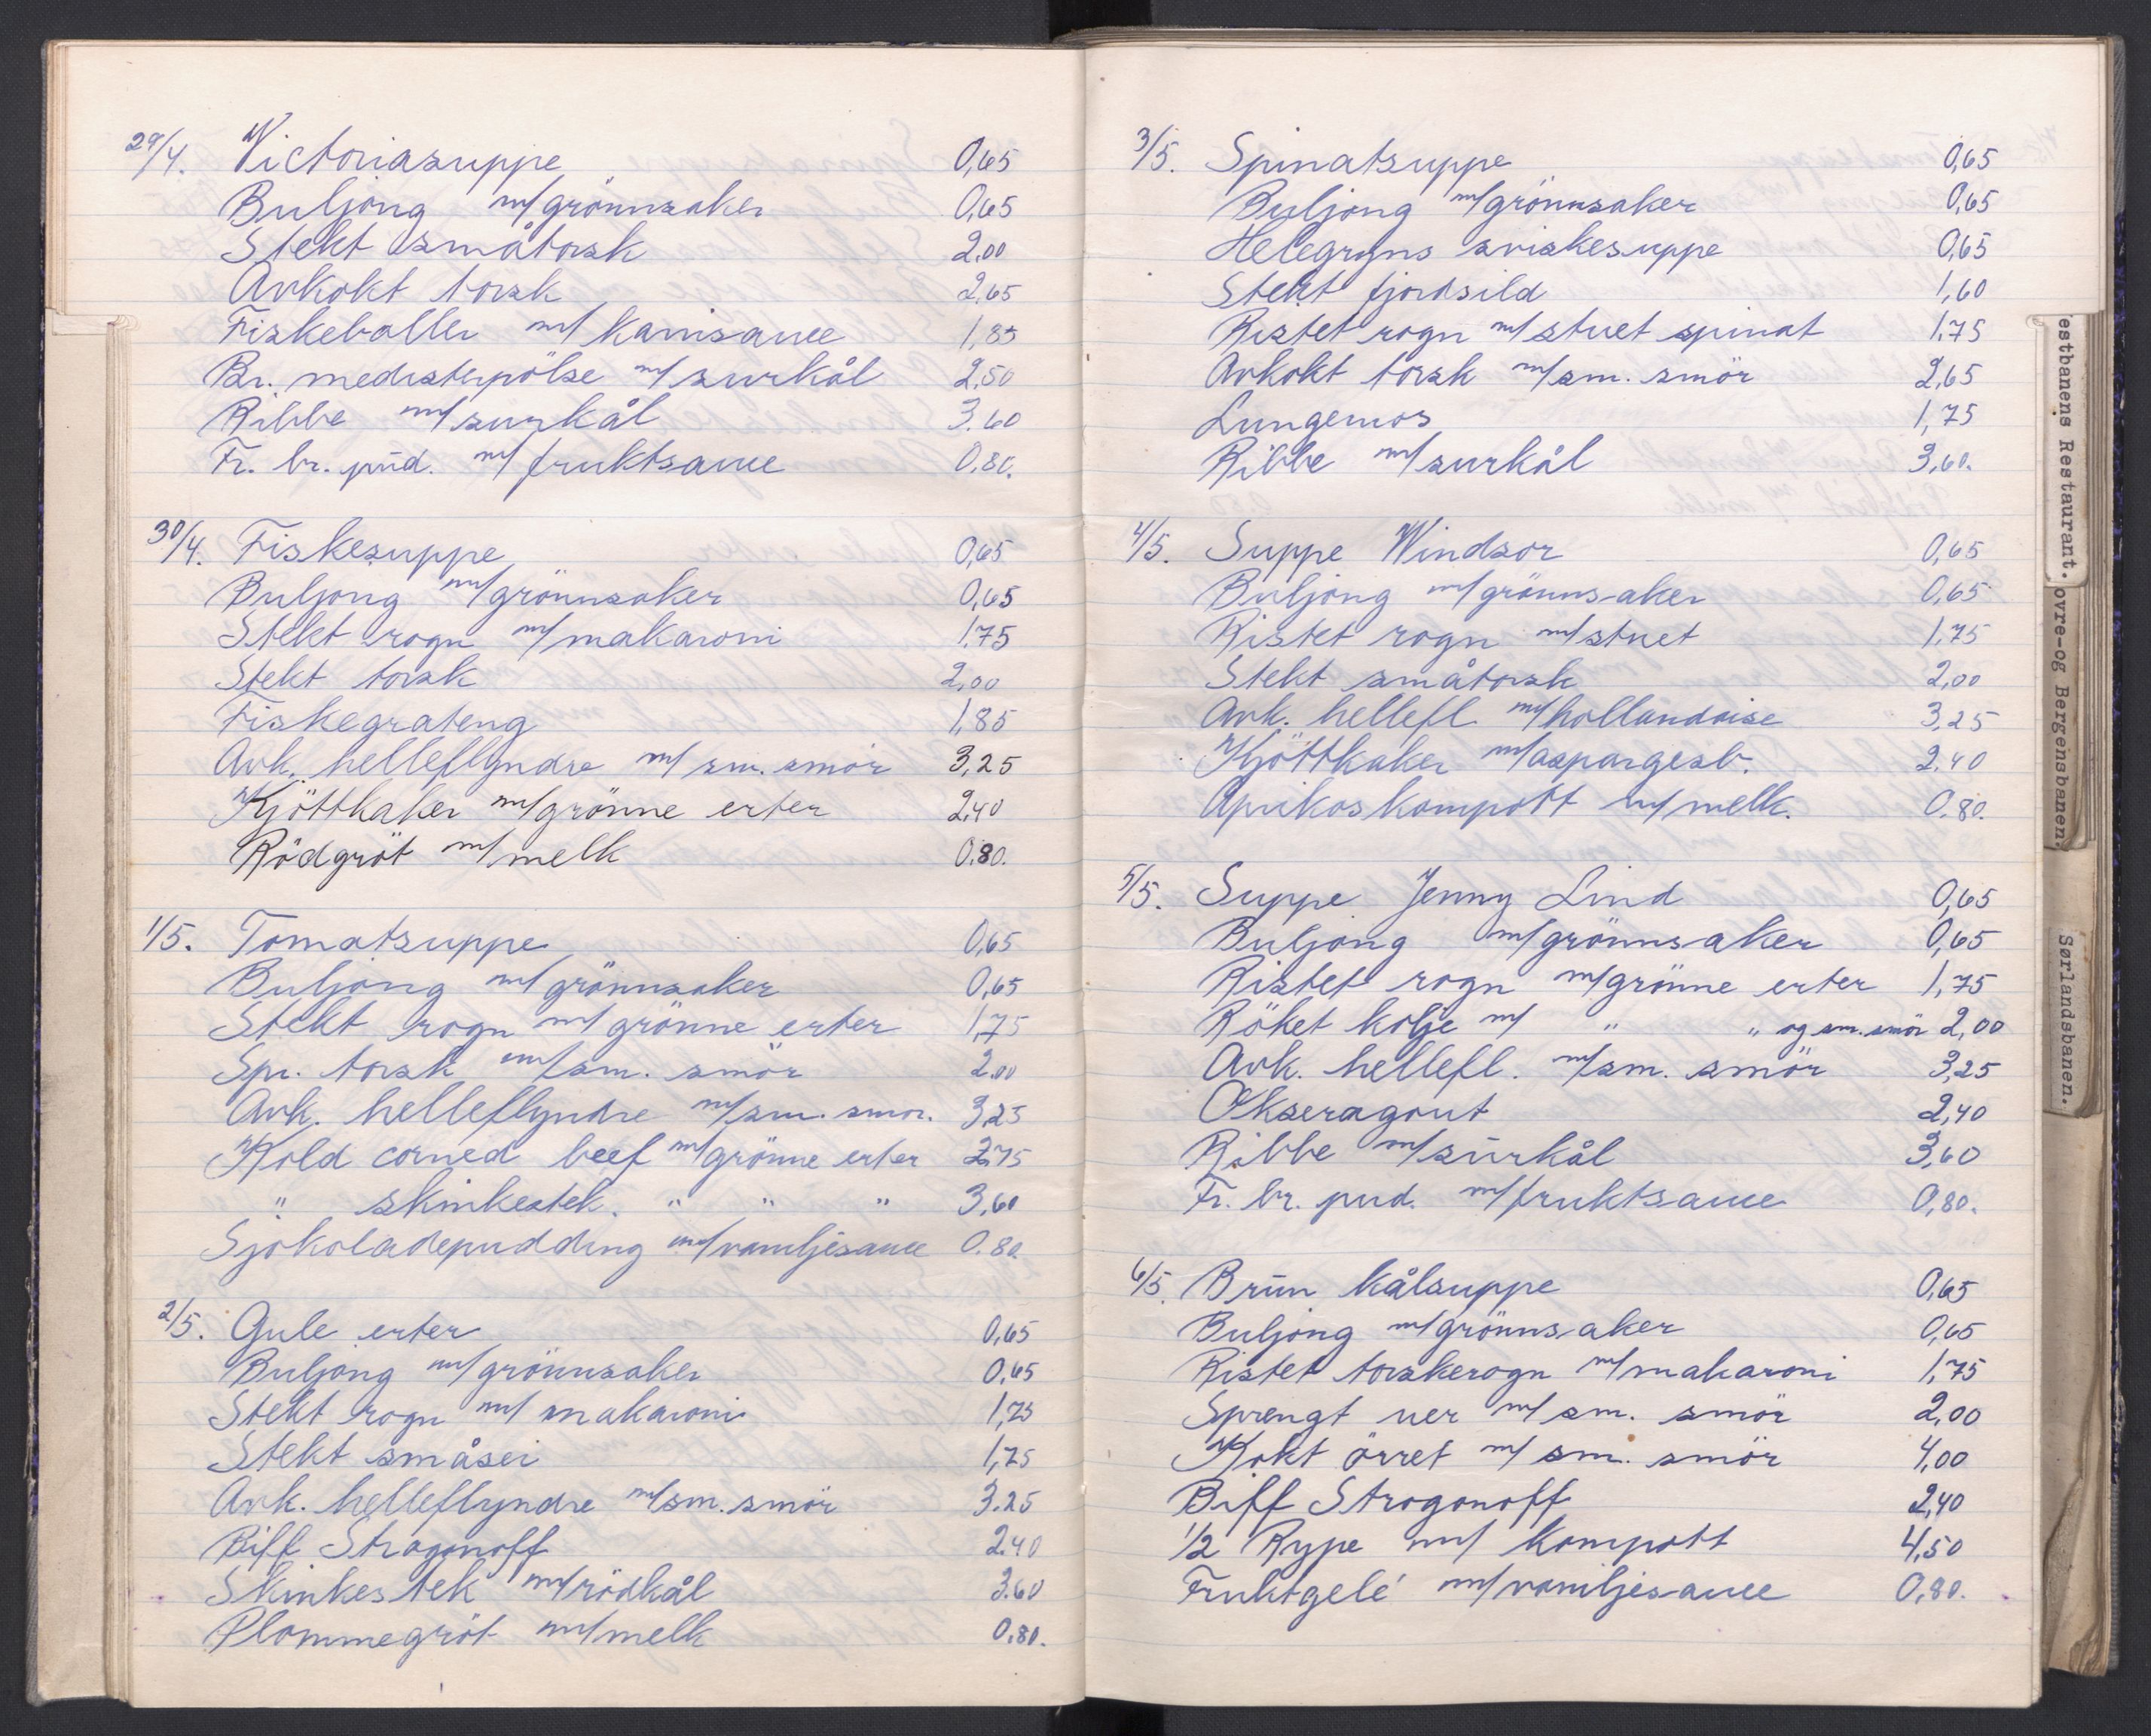 29/4. Victoriasuppe 0,65
Buljong m/grönnsaker 0,65
Stekt småtorsk 2,00
Avkokt torsk 2,65
Fiskeboller m/ karrisauce 1,85
Br. medisterpölse m/surkål 2,50
Ribbe m/surkål 3.60
Fr. br. pud. m/ fruktsauce 0,80.
30/4. Fiskesuppe 0,65
Buljong m/grönnsaker 0,65
Stekt rogn m/makaroni 1.75
Stekt torsk 2,00
Fiskegrateng 1,85
Avk. helleflyndre m/ sm. smör 3,25
Kjöttkaker m/grönne erter 2,40
Rödgröt m/melk 0.80.
1/5. Tomatsuppe 0,65
Buljong m/grönnsaker 0,65
Stekt rogn m/ grönne erter 1,75
Spr. torsk m/sm. smör 2.00
Avk. helleflyndre m/sm. smör. 3,25
Kold corned beef m/grönne erter 2,75
" skinkestek. " " " 3,60
Sjokoladepudding m/vaniljesauce 0.80.
2/5. Gule erter 0,65
Buljong m/grönnsaker 0,65
Stekt rogn m/ makaroni 1,75
Stekt småsei 1,75
Avk. helleflyndre m/sm. smör 3.25
Biff Strogonoff 2.40
Skinkestek m/rödkål 3.60
Plommegröt m/melk 0.80.
3/5. Spinatsuppe 0,65
Buljong m/grönnsaker 0,65
Helegryns sviskesuppe 0,65
Stekt fjordsild 1,60
Ristet rogn m/stuet spinat 1.75
Avkokt torsk m/sm. smör 2,65
Lungemos 1,75
Ribbe m/surkål 3,60.
4/5. Suppe Windsor 0,65
Buljong m/grönnsaker 0,65
Ristet rogn m/stuet 1.75
Stekt småtorsk 2,00
Avk. hellefl. m/hollandaise 3,25
Kjöttkaker m/aspargesb. 2.40
Aprikoskompott m/melk. 0.80.
5/5. Suppe Jenny Lind 0,65
Buljong m/grönnsaker 0,65
Ristet rogn m/grönne erter 1,75
Röket kolje m/ " " og sm. smör 2,00
Avk. hellefl. m/sm. smör 3,25
Okseragout 2,40
Ribbe m/surkål 3,60
Fr. br. pud. m/fruktsauce 0,80.
6/5. Brun kålsuppe 0,65
Buljong m/grönnsaker 0,65
Ristet torskerogn m/makaroni 1,75
Sprengt uer m/ sm. smör 2,00
Kokt örret m/ sm. smör 4,00
Biff Strogonoff 2,40
1/2 Rype m/ kompott 4,50
Fruktgelé m/vaniljesauce 0,80.
estbanens Restaurant.
ovre-og Bergensbanen.
Sørlandsbanen.